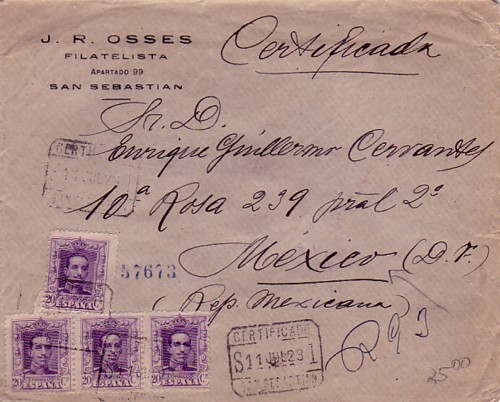 J. R. OSSES
FILATELISTA
APARTADO 99
SAN SEBASTIAN
Certificada
Sr. D.
Enrique Guillermo Cervantes
10ª Rosa 239 pral 2º
México (D.F.)
(Rep. Mexicana)
CERTIFIC
11 JUL 23
57673
20 Cs
ESPAÑA
20 Cs
ESPAÑA
20 Cs
ESPAÑA
20 Cs
ESPAÑA
CERTIFICADO
S 11 JUL 23 1
SAN SEBASTIAN
R 93
25.00